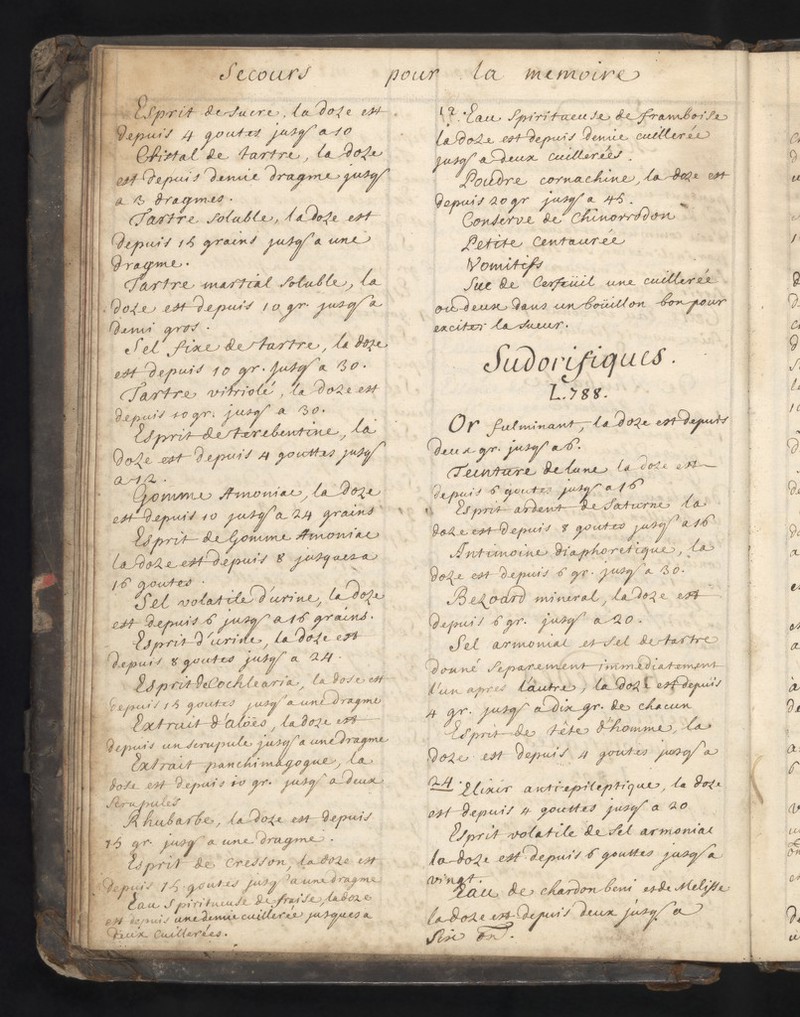 Secours pour la memoire
Esprit de sucre, la doze est
depuis 4 goutes jusq' a 10
Cristal de tartre, la doze
est depuis demie dragme jusq'
a 3 dragmes.
Tartre soluble, la doze est
depuis 15 grains jusq' a une
dragme.
Tartre martial soluble, la
doze est depuis 10 gr. jusq' a
demi gros.
Sel fixe de tartre, la doze
est depuis 10 gr. jusq' a 30.
Tartre vitriolé, la doze est
depuis 10 gr. jusq' a 30.
Esprit de terebentine, la
doze est depuis 4 gouttes jusq'
a 12.
Gomme Amoniac, la doze
est depuis 10 jusq' a 24 grains
Esprit de Gomme Amoniac
la doze est depuis 8 jusques a
16 goutes.
Sel volatile d'urine, la doze
est depuis 6 jusq' a 16 grains.
Esprit d'urine, la doze est
depuis 8 goutes jusq' a 24.
Esprit de Cochlearia, la dose est
depuis 15 goutes jusq' a une dragme
Extrait d'aloës, la doze est
depuis un scrupule jusq' a une dragme
Extrait panchimagogue, la
dose est depuis 10 gr. jusq' a deux
scrupules
Rhubarbe, la doze est depuis
15 gr. jusq' a une dragme.
Esprit de cresson, la doze est
depuis 15 goutes jusq' a une dragme
Eau spiritueuse de fraise, la doze
est depuis une demie cuillerée jusques a
deux cuillerées.
Eau spiritueuse de framboise
la doze est depuis demie cuillerée
jusq' a deux cuillerées.
Poudre cornachine, la doze est
depuis 20 gr jusq' a 45.
Conserve de Chinorrodon
Petite centaurée
Vomitifs
Suc de Cerfeüil une cuillerée
ou deux dans un boüillon bon pour
exciter la sueur.
Sudorifiques.
L. 788.
Or fulminant, la doze est depuis
deux gr. jusq' a 6.
Teinture de lune la doze est
depuis 6 goutes jusq' a 16
Esprit ardent de Saturne la
doze est depuis 8 goutes jusq' a 16
Antimoine diaphoretique, la
doze est depuis 6 gr. jusq' a 30.
Bezoard mineral, la doze est
depuis 6 gr. jusq' a 20.
Sel armonial et sel de tartre
donné separement immediatement
l'un apres lautre, la doze est depuis
4 gr. jusq' a dix gr. de chacun
Esprit de tête d'homme, la
doze est depuis 4 goutes jusq' a
24. Elixir antiepileptique, la doze
est depuis 4 gouttes jusq' a 20
Esprit volatile de sel armoniac
la doze est depuis 6 gouttes jusq' a
vingt.
Eau de chardon beni et de Melisse
la doze est depuis deux jusq' a
six